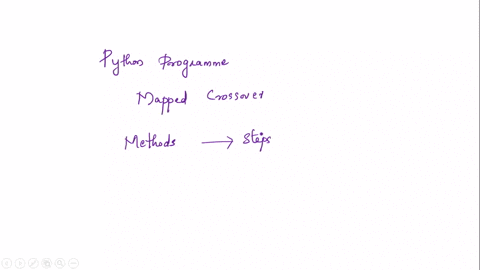 Python Programme
Mapped Crossover
Methods → Steps